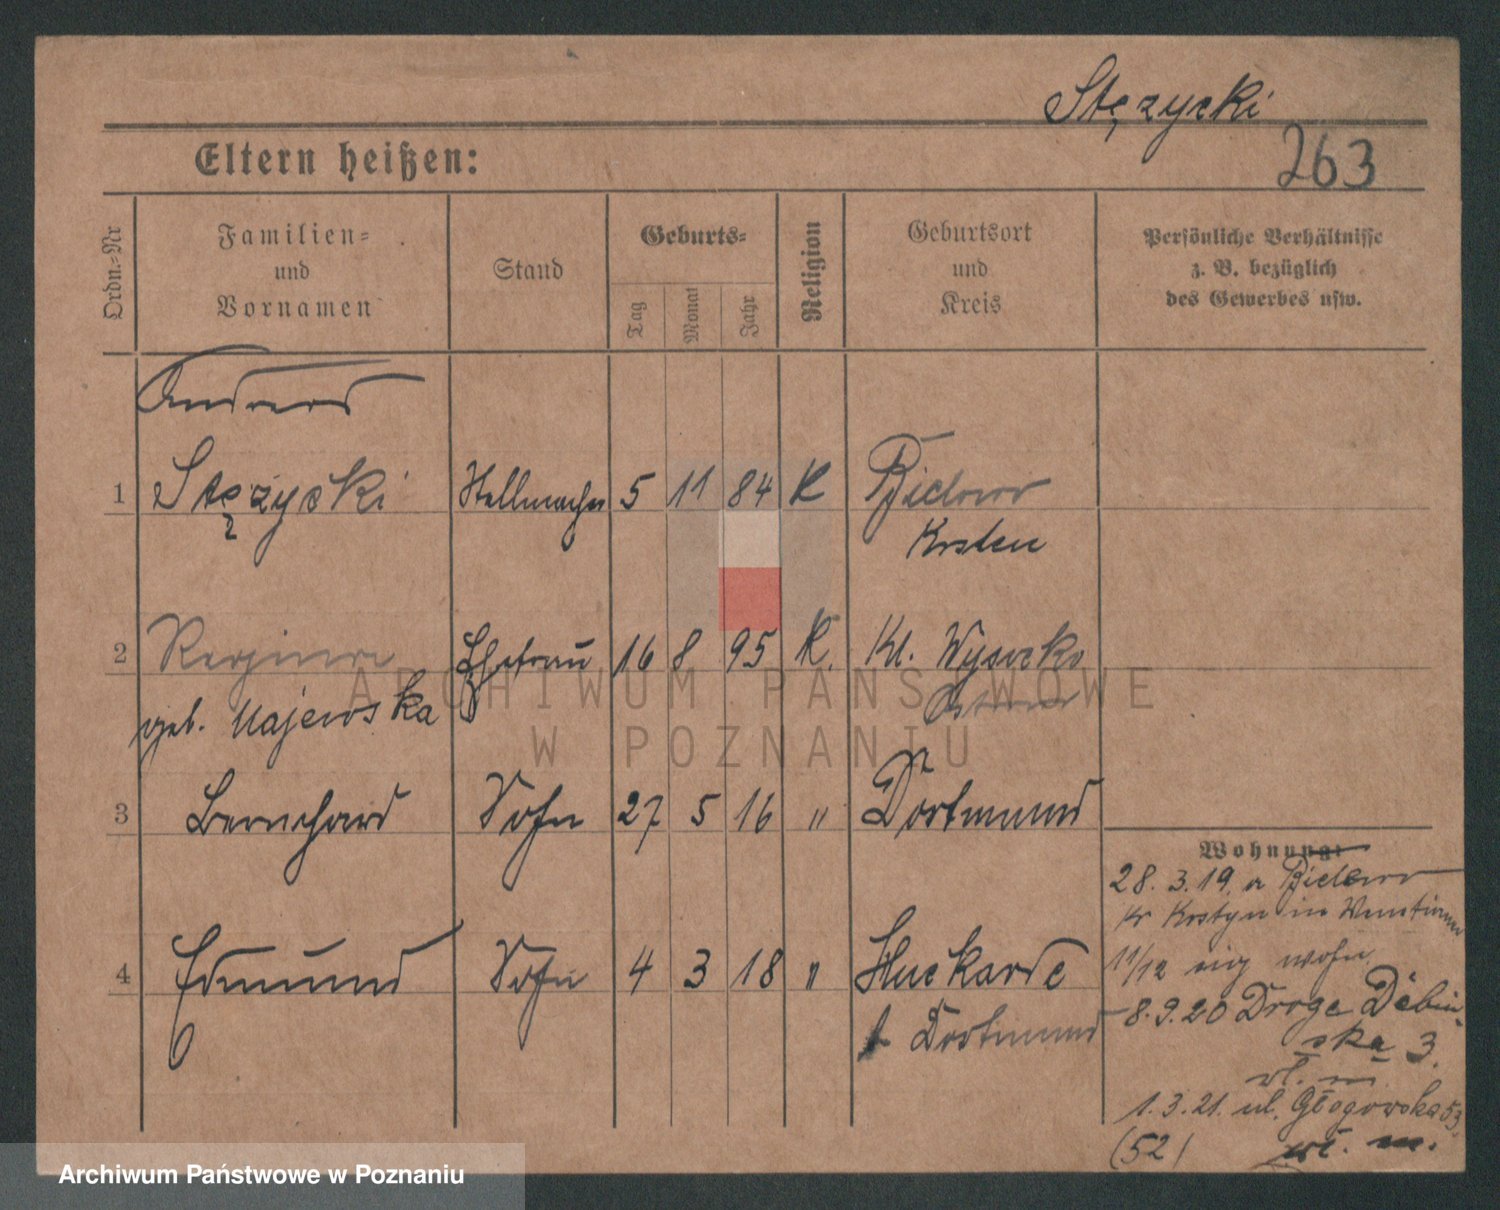 Stęzycki
Eltern heißen:
263
Ordn.=Nr
Familien=
und
Vornamen
Stand
Geburts=
Tag
Monat
Jahr
Religion
Geburtsort
und
Kreis
Persönliche Verhältnisse
z. B. bezüglich
des Gewerbes usw.
Andreas
1 Stęzycki Stellmacher 5 11 84 K
Kosten
2 Regina Ehefrau 16 8 95 K. Kl. Wysocko
geb. Majewska
3 Bernhard Sohn 27 5 16 " Dortmund
4 Edmund Sohn 4 3 18 " Huckarde
b Dortmund
Wohnung:
28. 3. 19. a
Kr Kostyn in
11/12 wohn.
8. 9. 20 Droga Dębiń-
ska 3.
wł. m.
1. 3. 21. ul. Głogowska 53.
(52) wł. m.
ARCHIWUM PAŃSTWOWE
W POZNANIU
Archiwum Państwowe w Poznaniu